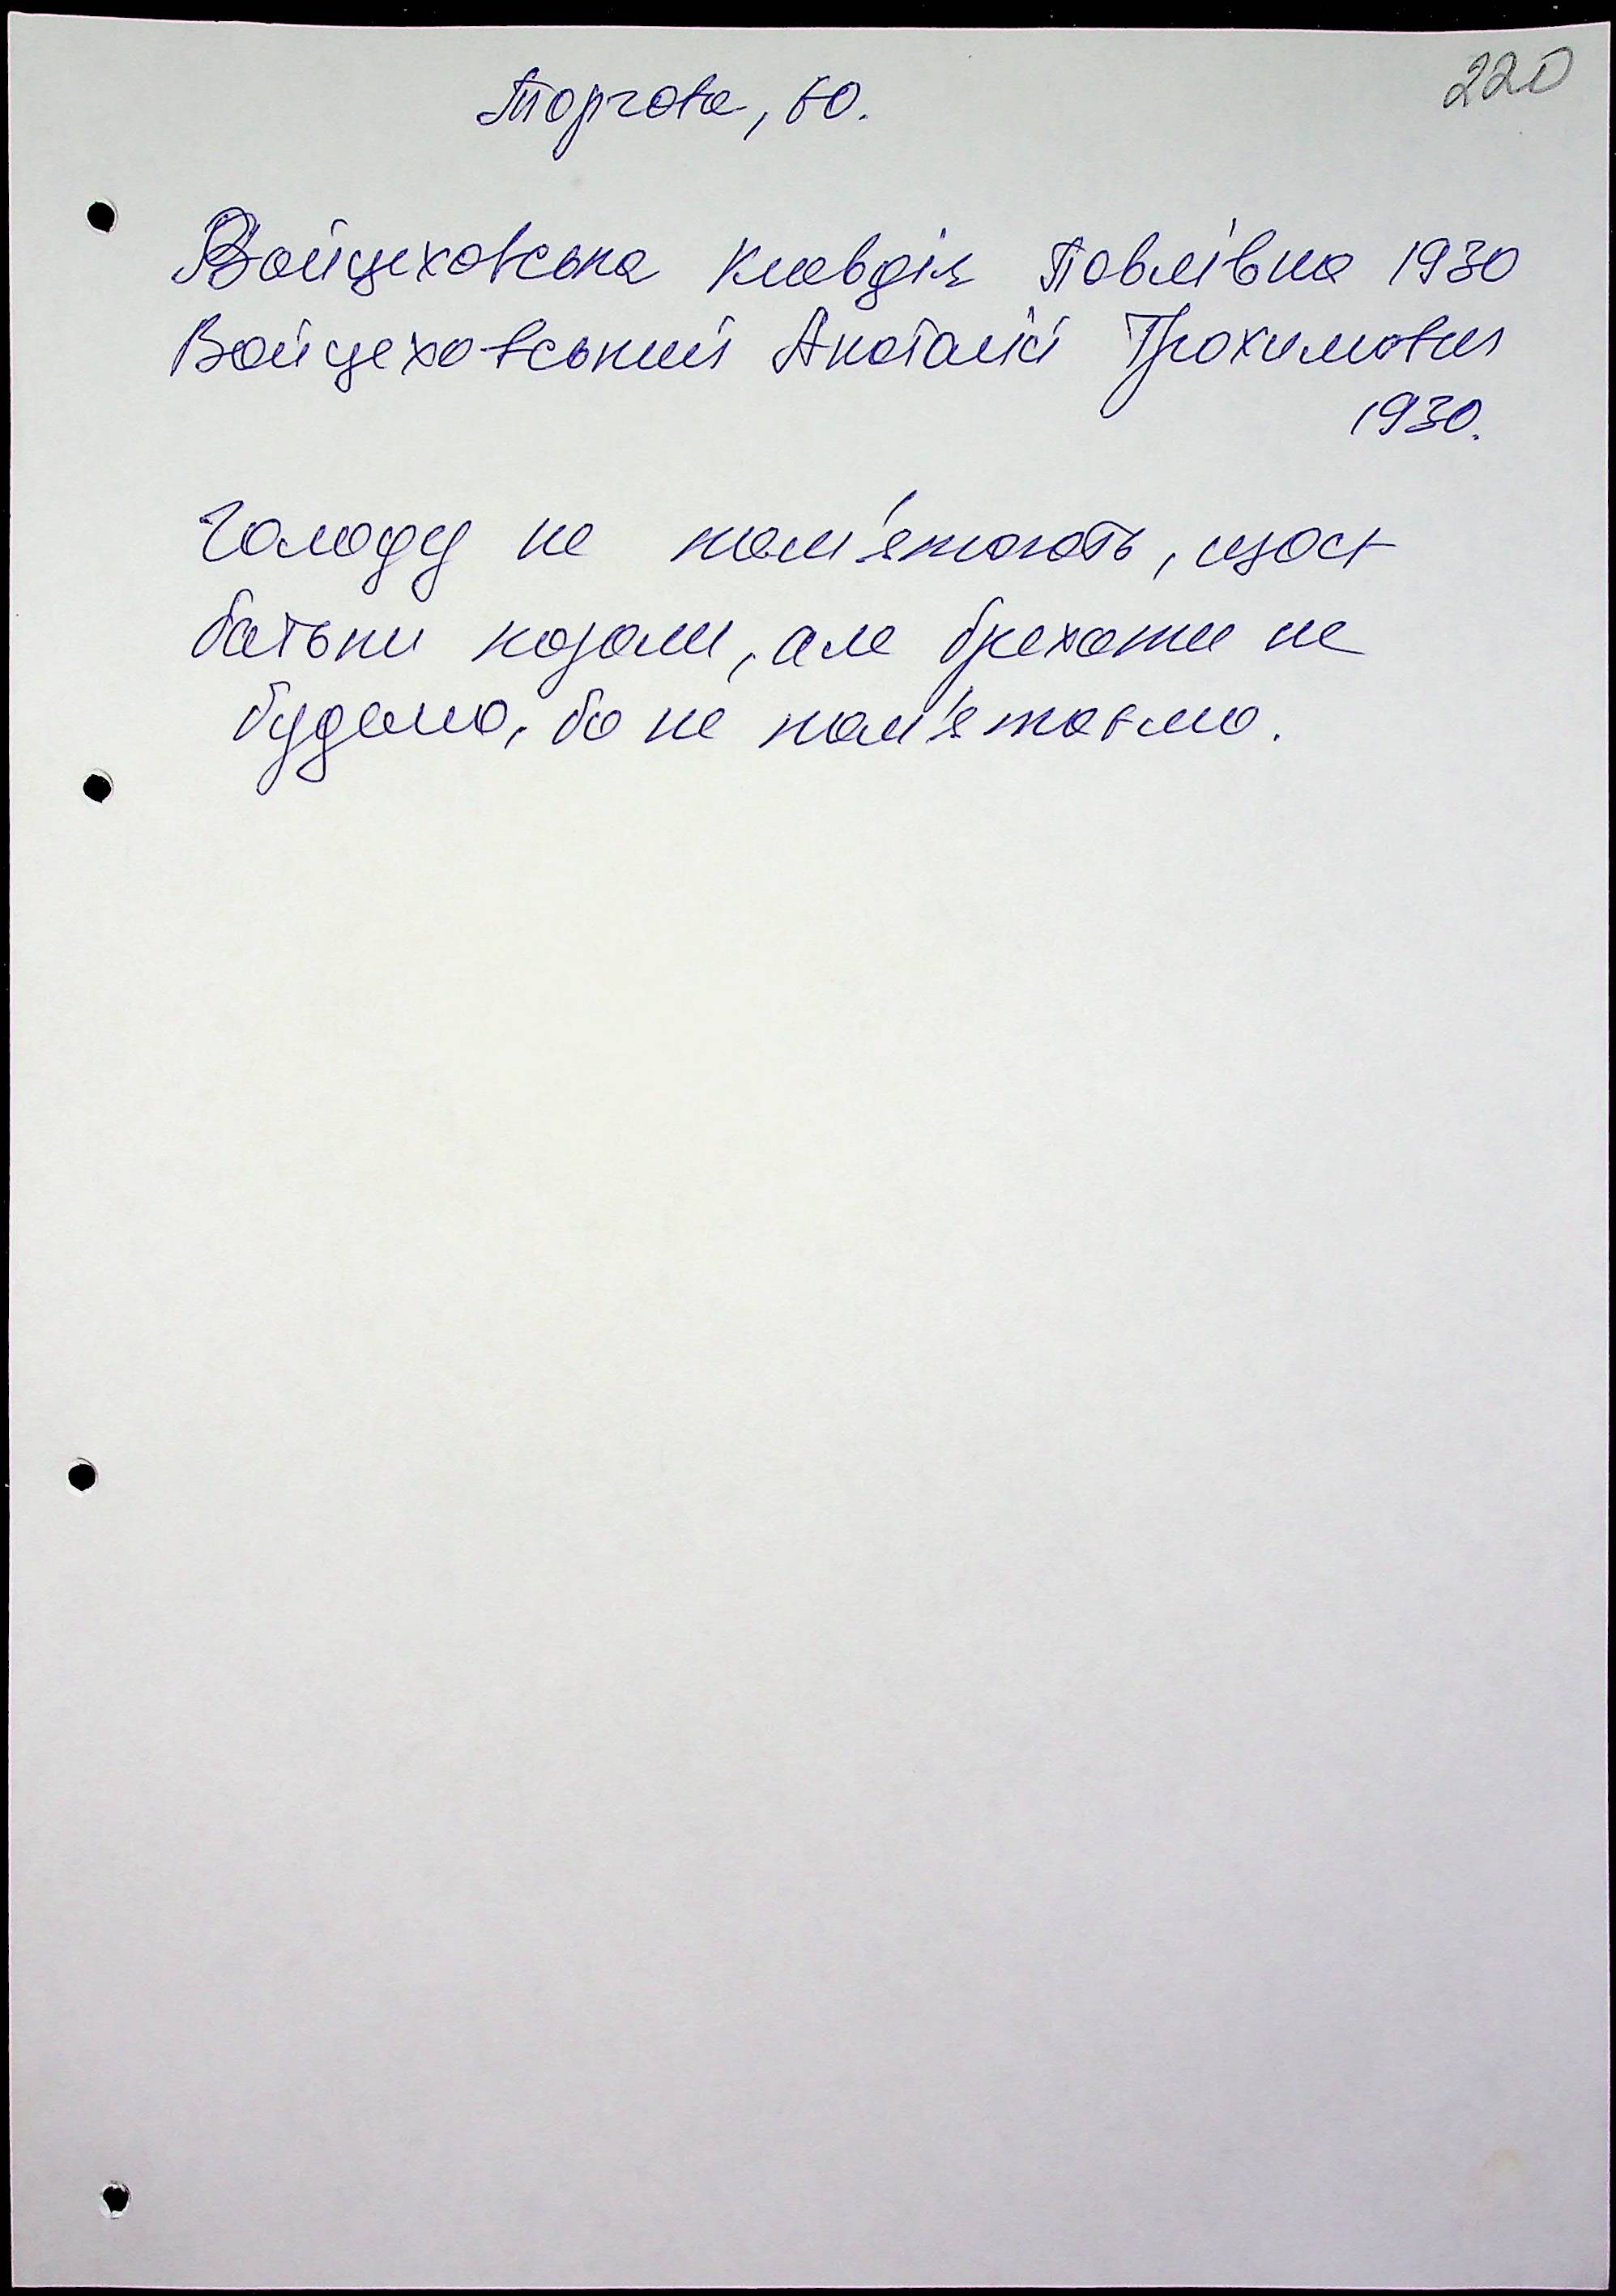 220
Торгова, 60.
Войцеховська Клавдія Павлівна 1930
Войцеховський Анатолій Трохимович
1930.
Голоду не пам'ятають, щось
батьки казали, але брехати не
будемо, бо не пам'ятаємо.